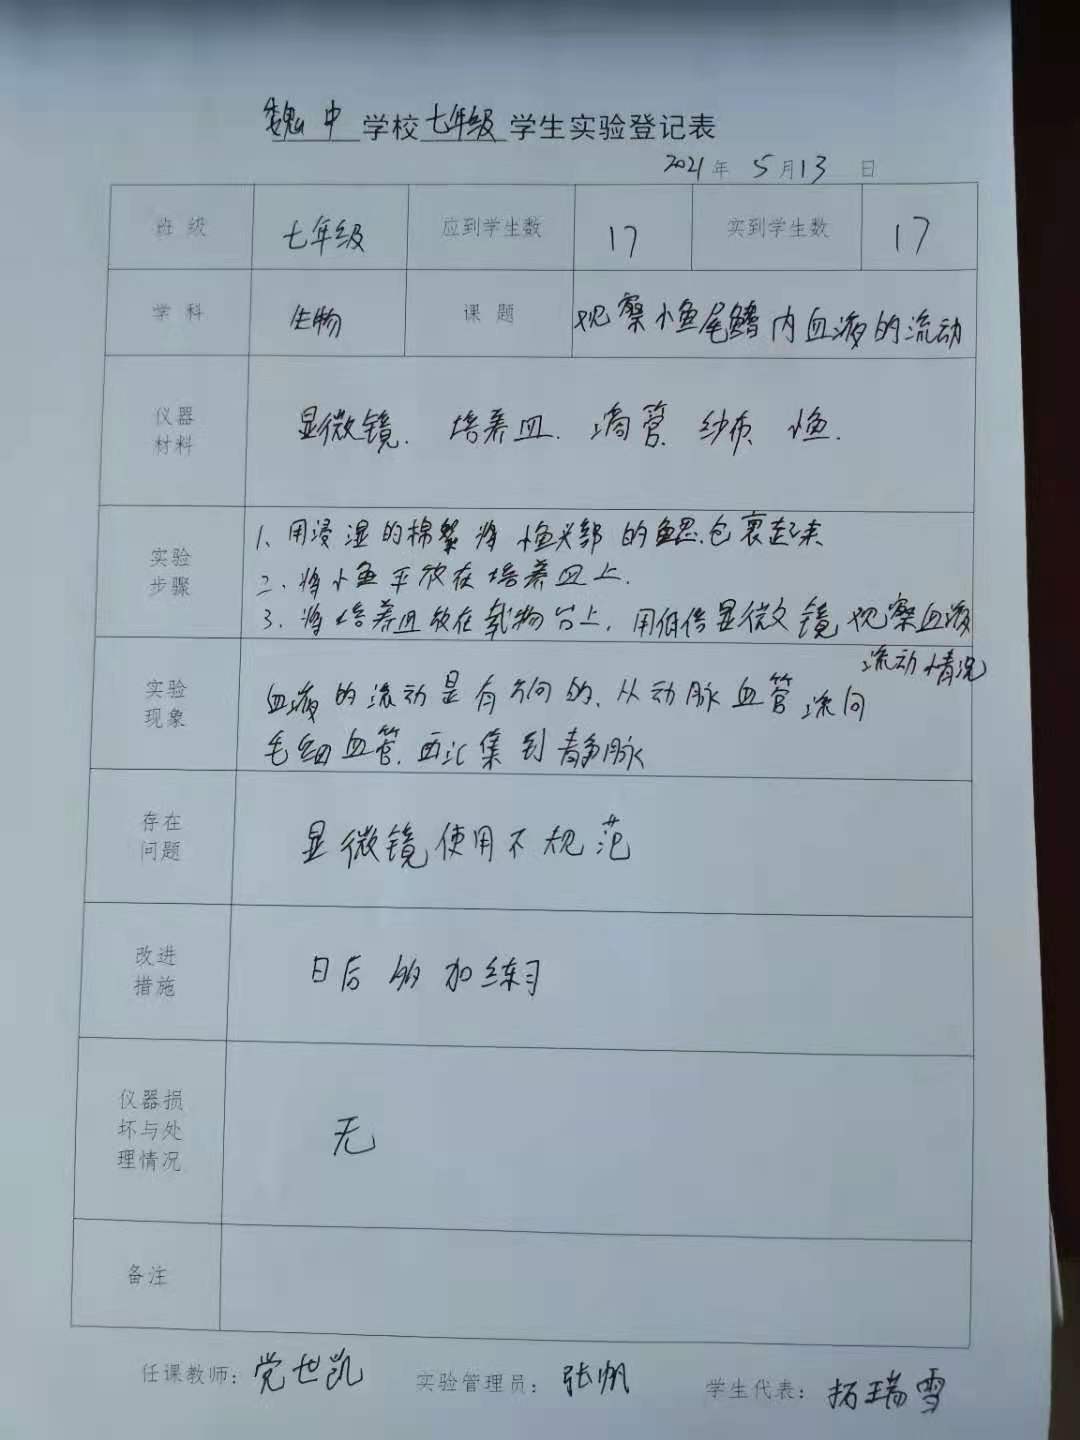 魏中学校七年级学生实验登记表
2021年5月13日
班级 七年级 应到学生数 17 实到学生数 17
学科 生物 课题 观察小鱼尾鳍内血液的流动
仪器
材料
显微镜. 培养皿. 滴管. 纱布. 小鱼.
实验
步骤
1、用浸湿的棉絮将小鱼头部的鱼思包裹起来
二、将小鱼平放在培养皿上.
3、将培养皿放在载物台上,用低倍显微镜观察血液
流动情况
实验
现象
血液的流动是有方向的、从动脉血管流向
毛细血管.再汇集到静脉
存在
问题
显微镜使用不规范
改进
措施
日后多加练习
仪器损
坏与处
理情况
无
备注
任课教师：党世凯 实验管理员：张帆 学生代表：拓瑞雪